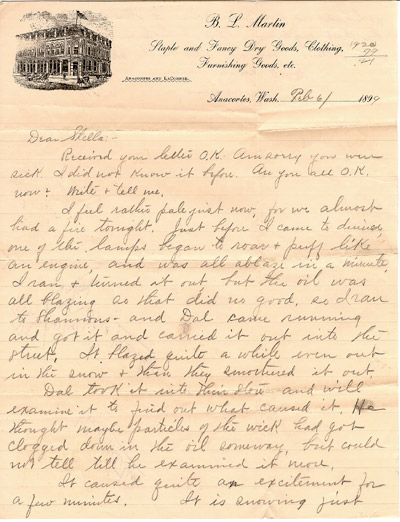 B. L. Martin
Staple and Fancy Dry Goods, Clothing,
Furnishing Goods, etc.
Anacortes, Wash. Feb 6/ 1899
Dear Stella:-
Received your letter O.K. Am sorry you were
sick. I did not know it before. Are you all O.K.
now? Write & tell me.
I feel rather pale just now, for we almost
had a fire tonight. Just before I came to dinner,
one of the lamps began to roar & puff like
an engine, and was all ablaze in a minute,
I ran & turned it out, but the oil was
all blazing so that did no good, so I ran
to Shannons- and Dal came running
and got it and carried it out into the
street. It blazed quite a while even out
in the snow & then they smothered it out.
Dal took it into their store and will
examine it to find out what caused it. He
thought maybe particles of the wick had got
clogged down in the oil someway, but could
not tell till he examined it more.
It caused quite an excitement for
a few minutes. It is snowing just